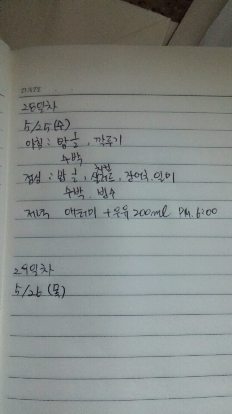 DATE
28일차
5/25 (수)
아침 : 밥 ½, 깍두기
수박
점심 : 밥 ½, 장어구이
수박, 빙수
저녁 + 우유 200ml PM.6:00
29일차
5/26 (목)